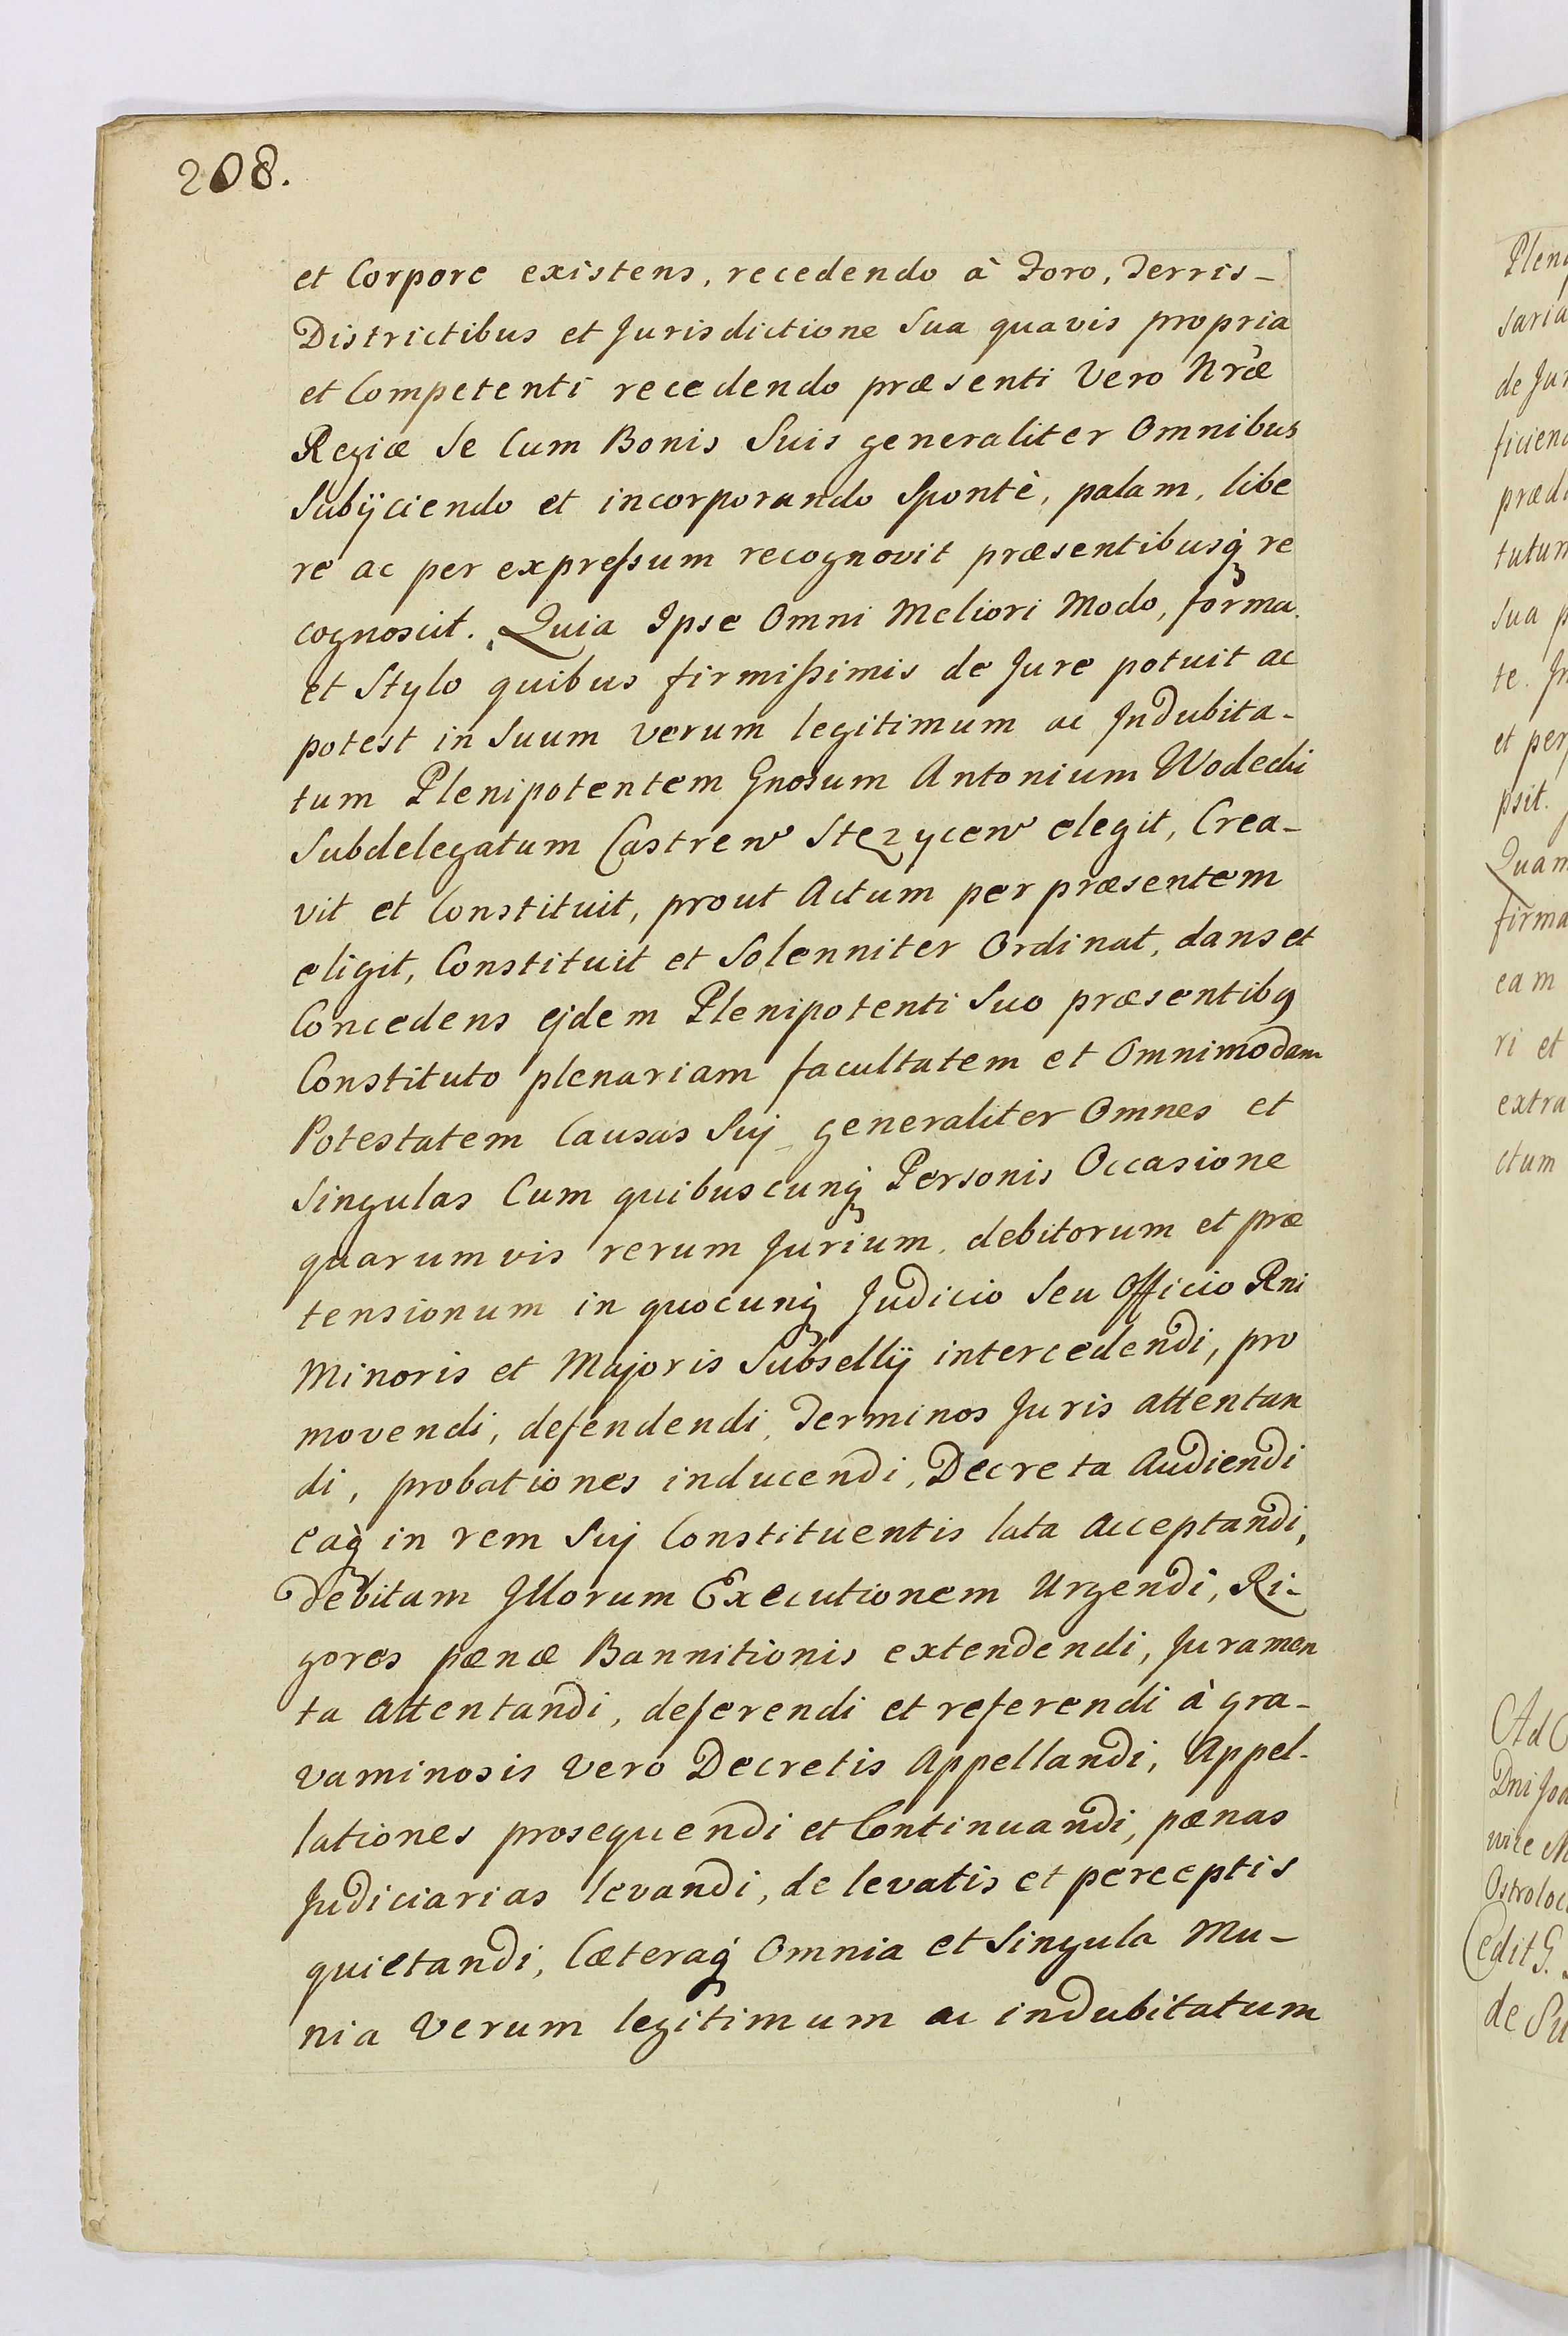 208.
et Corpore existens, recedendo à Foro, Terris-
Districtibus et Jurisdictione Sua quavis propria
et Competenti recedendo præsenti Vero Nræ
Regiæ Se Cum Bonis Suis generaliter Omnibus
Subijciendo et incorporando Spontè, palam, libe
re ac per expressum recognovit præsentibusq́ re
cognoscit. Quia Ipse Omni Meliori Modo, forma
et Stylo quibus firmissimis de Jure potuit ac
potest in Suum verum legitimum ac Indubita-
tum Plenipotentem Gnosum Antonium Wodecki
Subdelegatum Castren Stezycen elegit, Crea-
vit et Constituit, prout Actum per præsentem
eligit, Constituit et Solenniter Ordinat, dans et
Concedens ejdem Plenipotenti Suo præsentibq
Constituto plenariam facultatem et Omnimodam
Potestatem Causas Suj generaliter Omnes et
Singulas Cum quibuscunq́ Personis Occasione
quarumvis rerum Jurium, debitorum et præ
tensionum in quocunq́ Judicio Seu Officio Rni
Minoris et Majoris Subsellij intercedendi, pro
movendi, defendendi, Terminos Juris attentan
di, probationes inducendi, Decreta Audiendi
eaq́ in rem Suj Constituentis lata Acceptandi,
Debitam Illorum Executionem Urgendi, Ri-
gores pænæ Bannitionis extendendi, Juramen
ta Attentandi, deferendi et referendi à gra-
vaminosis Vero Decretis Appellandi, Appel-
lationes prosequendi et Continuandi, pænas
Judiciarias levandi, de levatis et perceptis
quietandi, Cæteraq́ Omnia et Singula Mu-
nia Verum legitimum ac indubitatum
Plen
saria
de Jur
ficien
præd
tutum
Sua p
te. In
et per
psit.
Quam
firma
eam
ri et
extra
ctum
Ad
Dni Joa
vice M
Ostroloc
Cedit G.
de Su